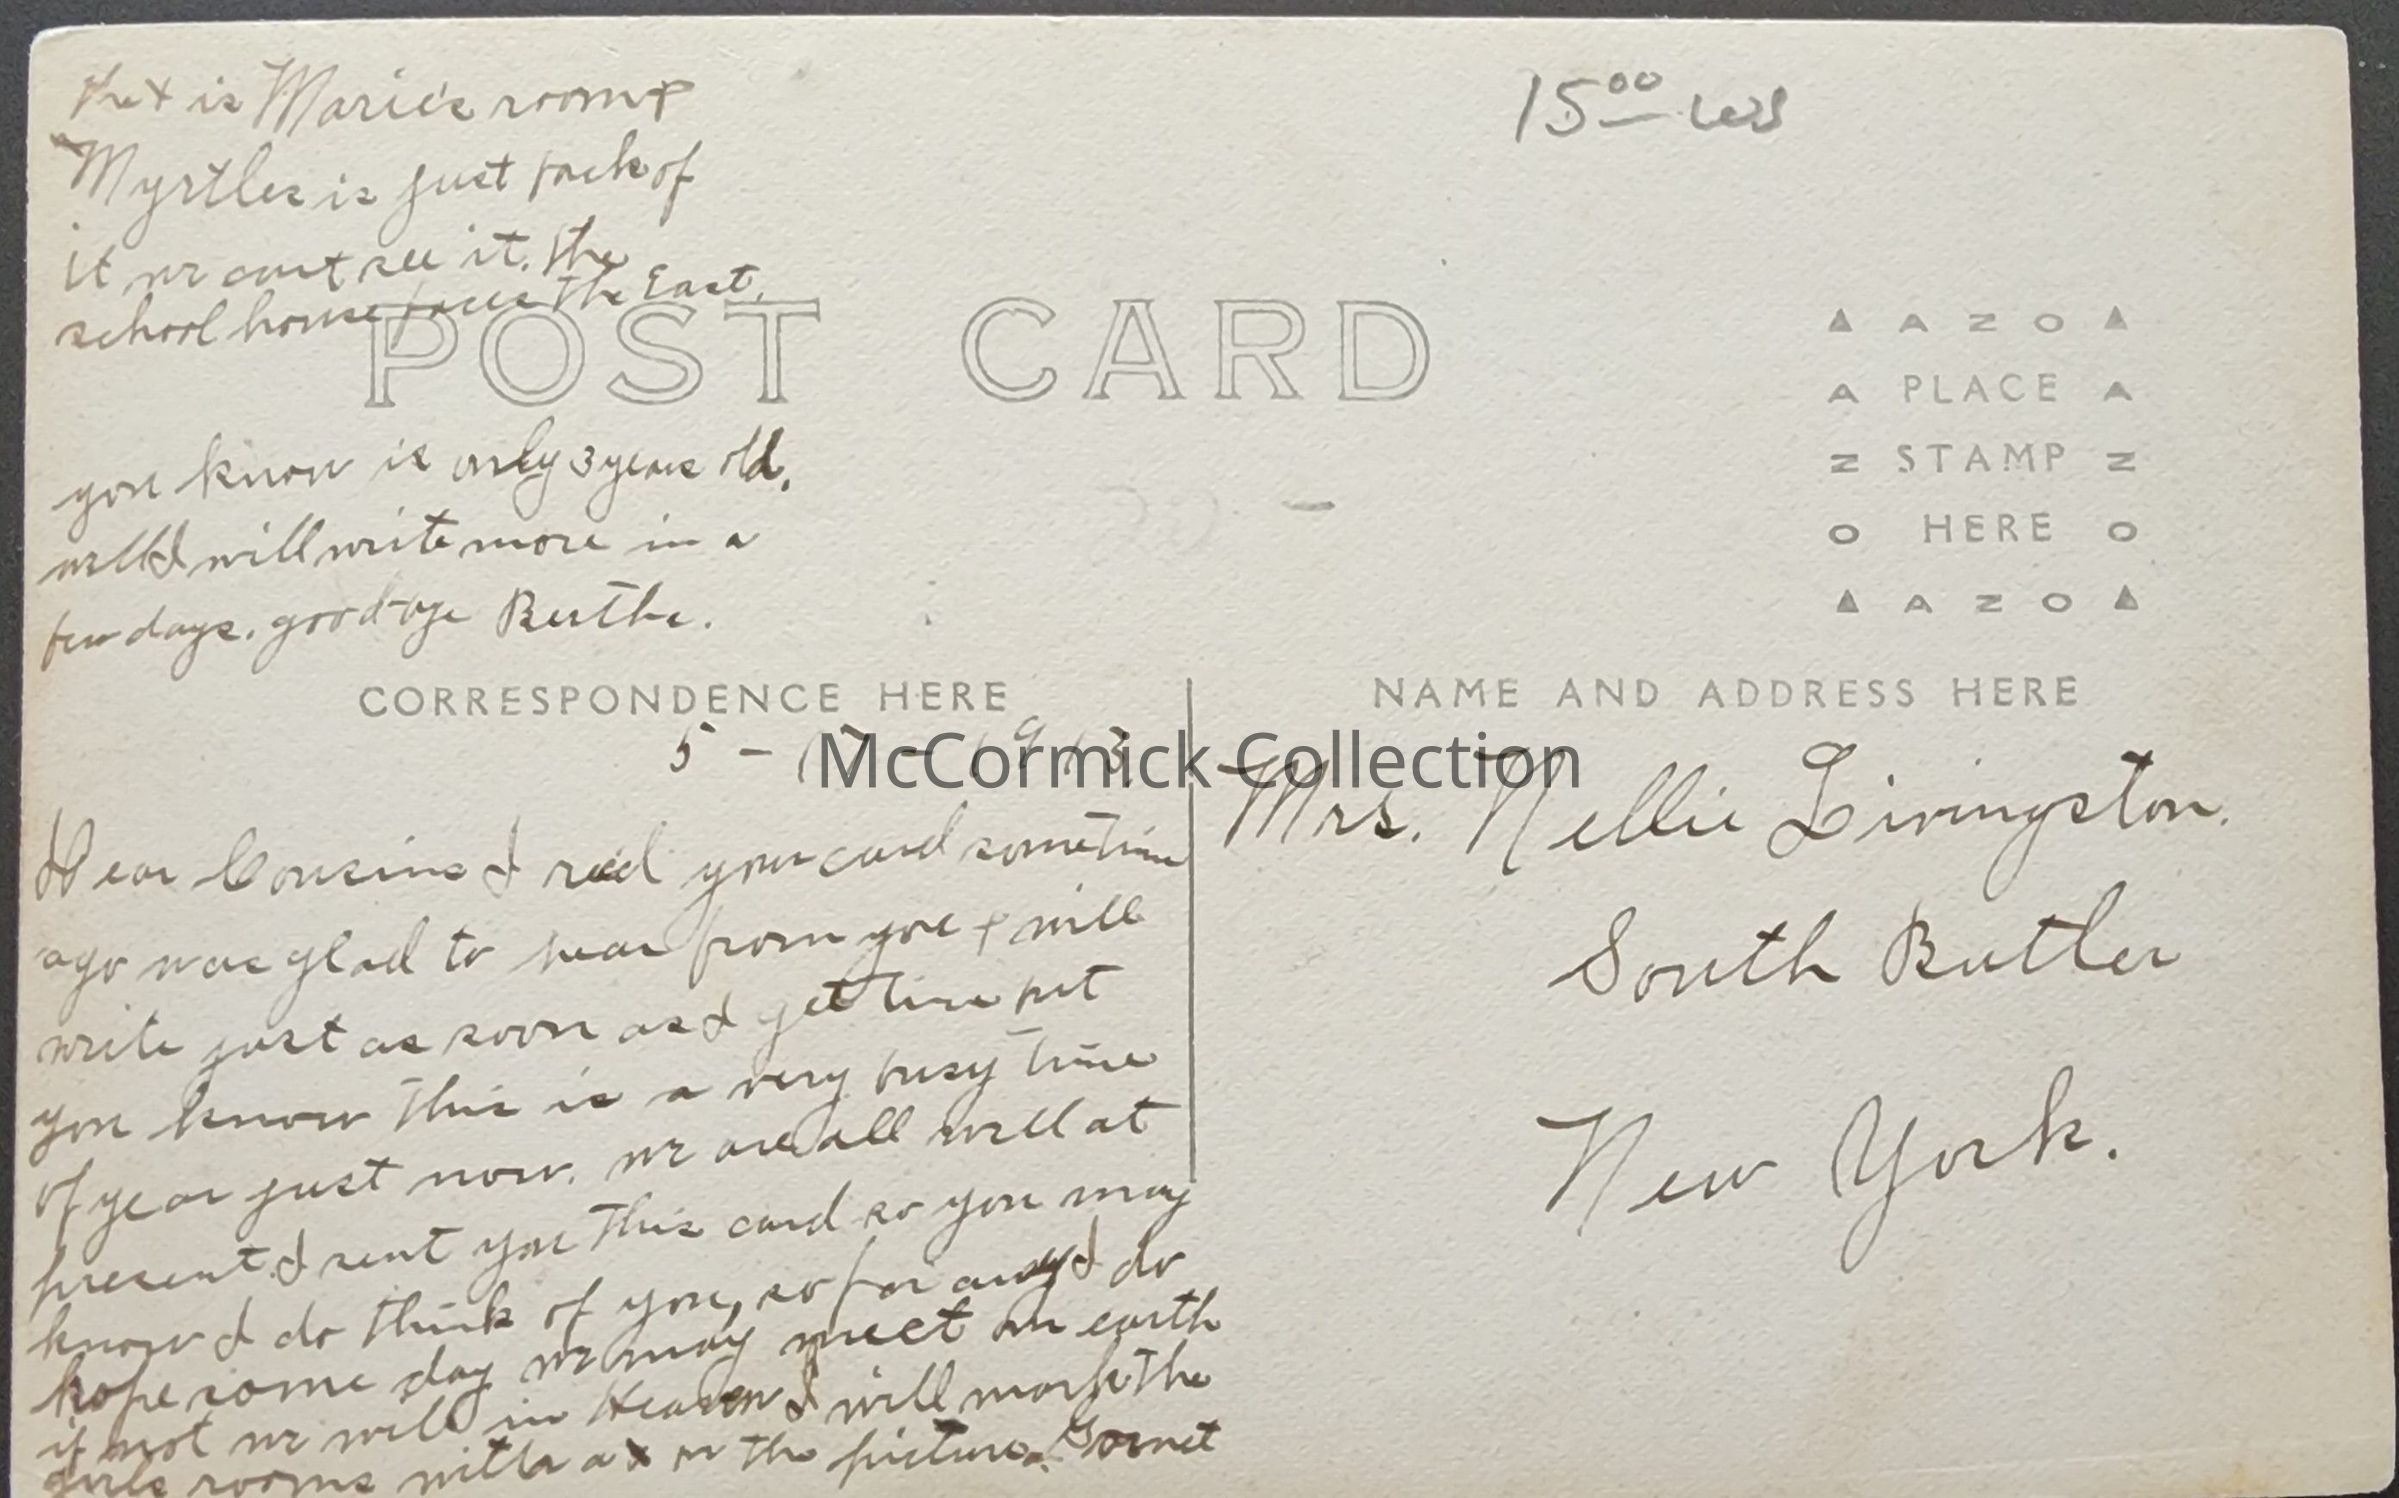 the x is Marie's room &
Myrtles is just back of
it we cant see it. the
school house faces the East.
15.00 less
POST CARD
AZO
PLACE
STAMP
HERE
AZO
you know is only 3 years old.
well I will write more in a
few days. good-bye Berthe.
CORRESPONDENCE HERE
NAME AND ADDRESS HERE
5-17-1913
McCormick Collection
Dear Cousins I rec'd your card sometime
ago was glad to hear from you & will
write just as soon as I get time but
you know this is a very busy time
of year just now. we are all well at
present. I sent you this card so you may
know I do think of you, so far away I do
hope some day we may meet on earth
if not we will in Heaven I will mark the
girls rooms with a x on the picture.
Mrs. Nellie Livingston.
South Butler
New York.